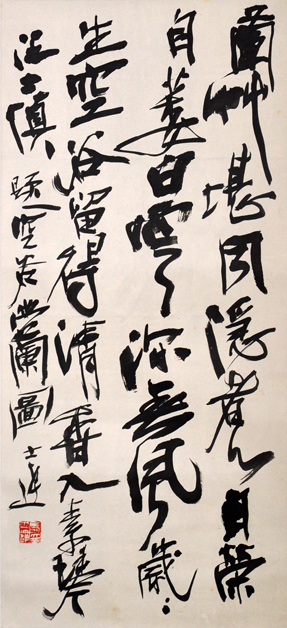 蘭艸堪同隱者心自榮
自萎白雲深春風歲〻
生空谷留得清香入素琴
汪士慎題空谷幽蘭圖 士